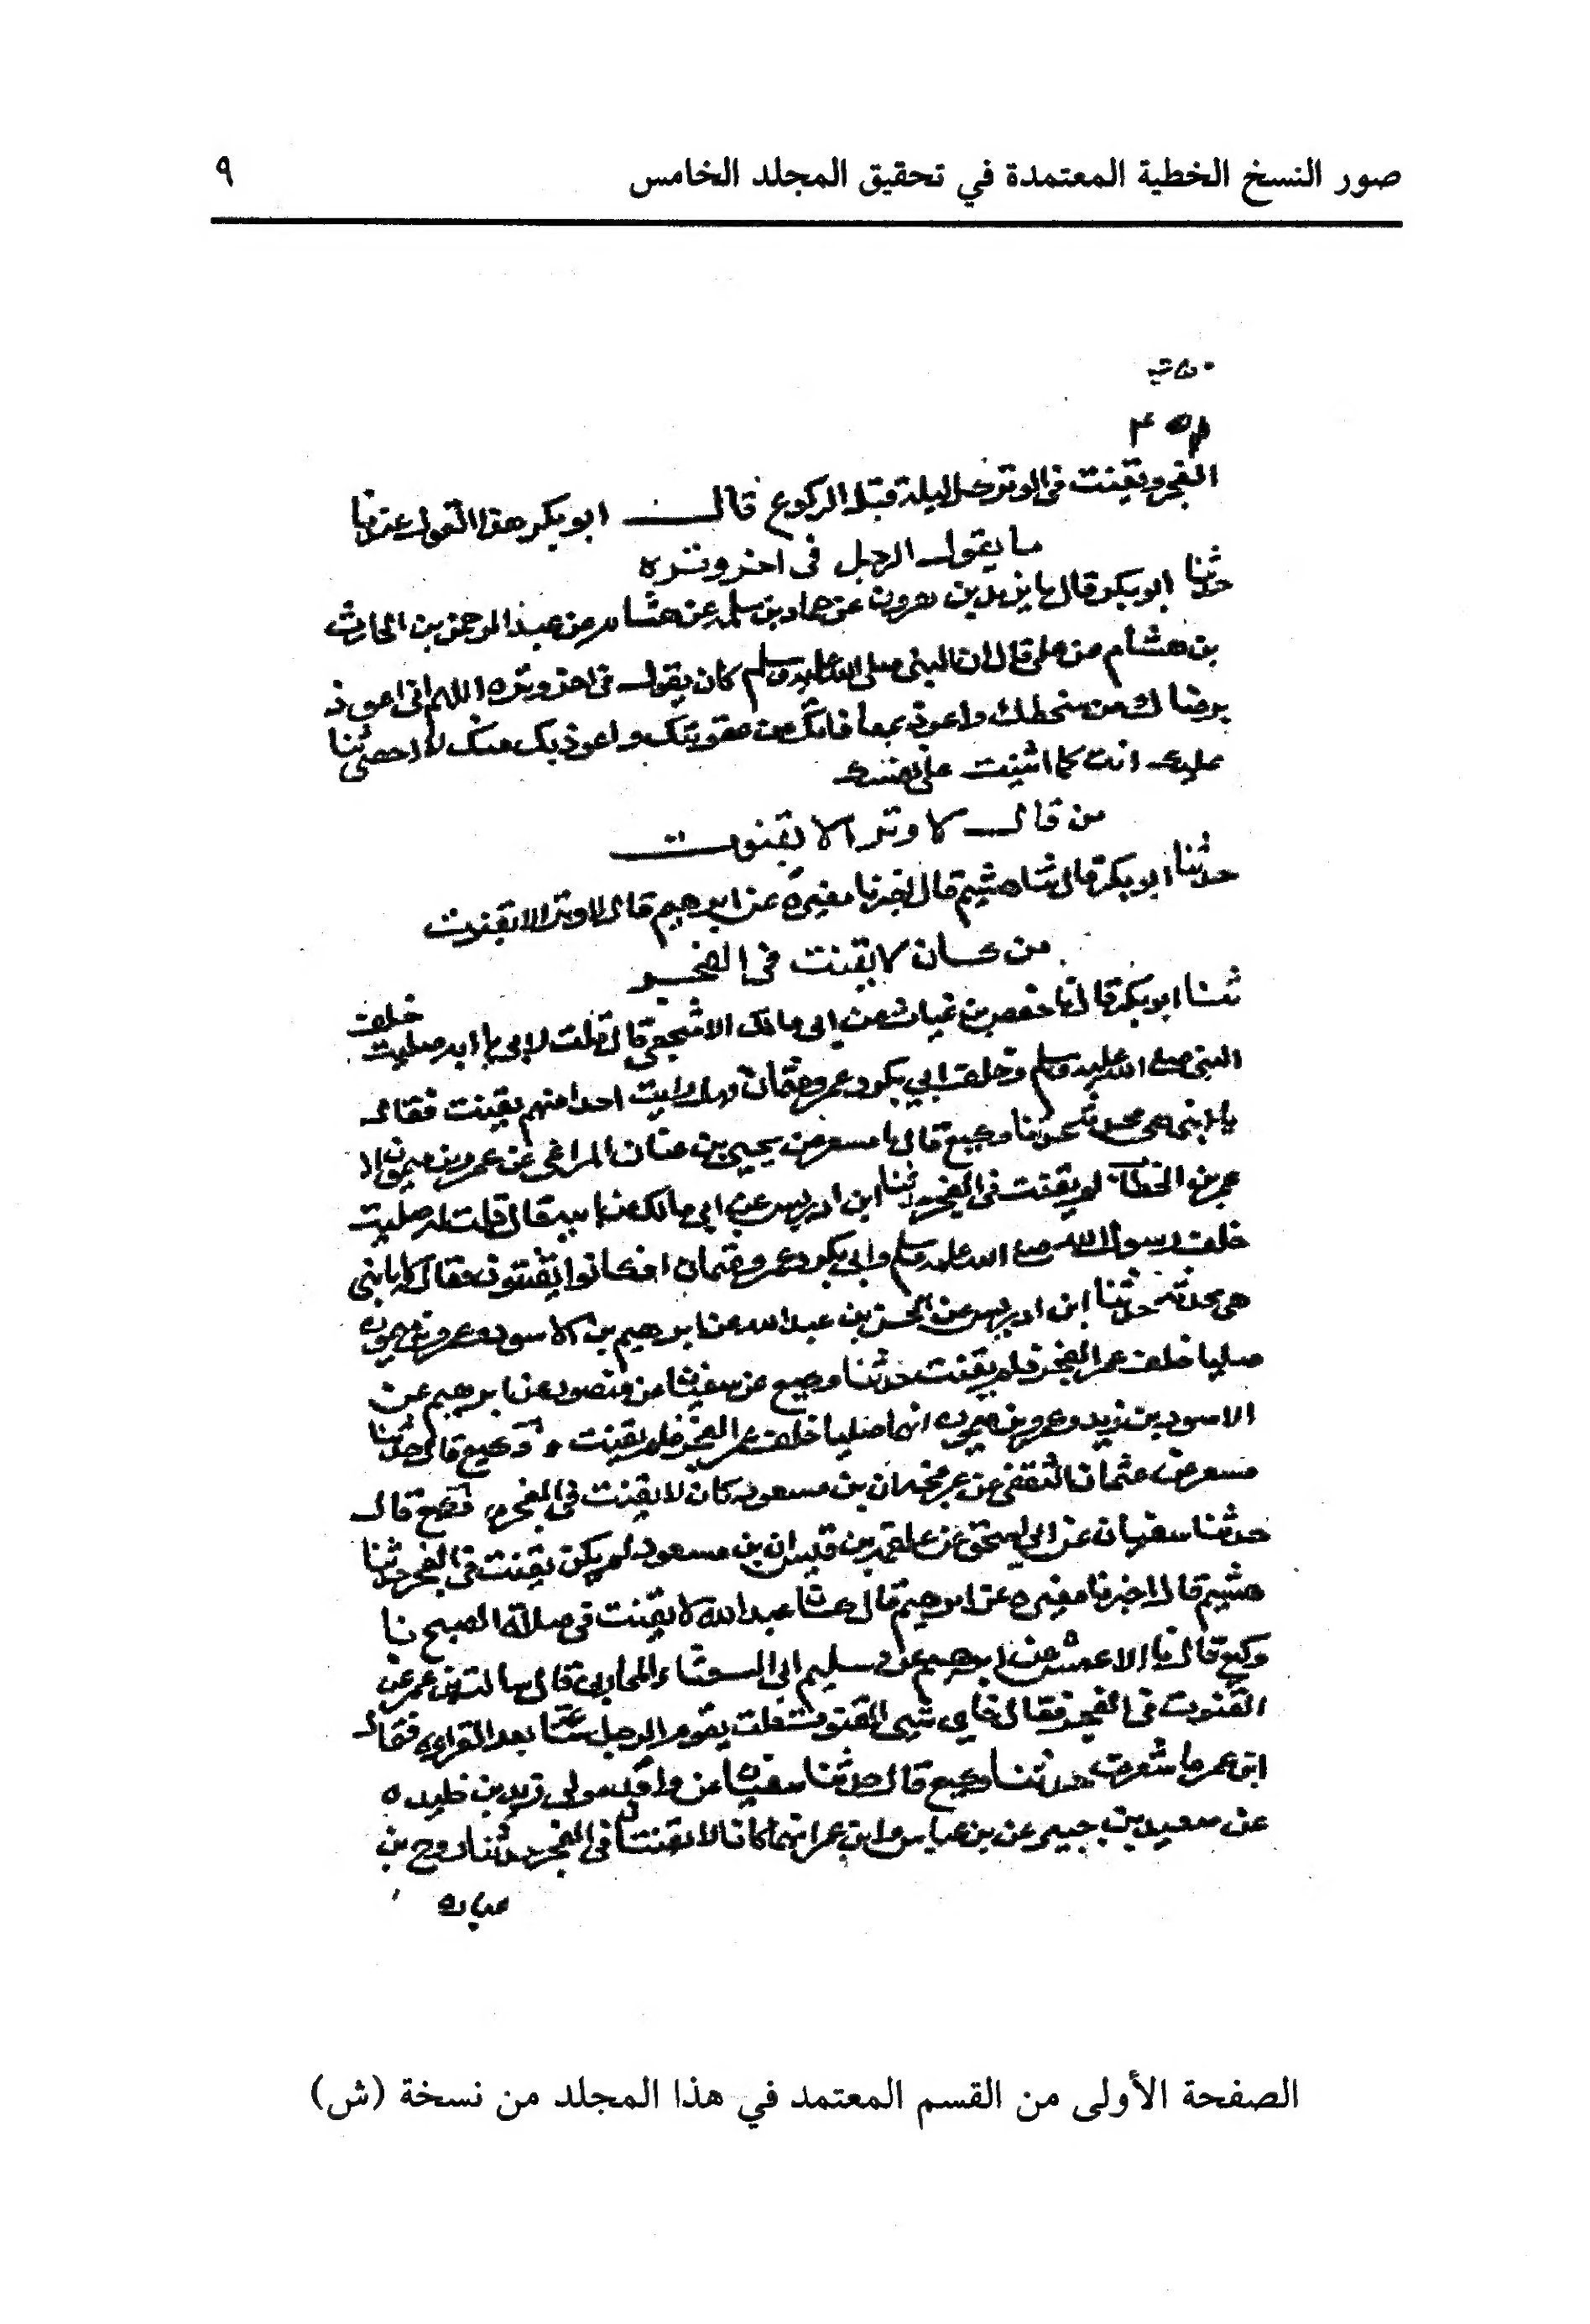 صور النسخ الخطية المعتمدة في تحقيق المجلد الخامس ٩
الفجر ويقنت في الوتر كل ليلة قبل الركوع قال ابو بكر هذا القول عندنا
ما يقول الرجل في اخر وتره
حدثنا ابو بكر قال نا يزيد بن هرون عن حماد بن سلمه عن هشام عن عبد الرحمن بن الحارث
بن هشام عن على قال ان النبي صلى الله عليه وسلم كان يقول في اخر وتره اللهم اني اعوذ
برضاك من سخطك واعوذ بمعافاتك من عقوبتك واعوذ بك منك لا احصى ثنا
عليك انت كما اثنيت على نفسك
من قال لا وتر الا بقنوت
حدثنا ابو بكر قال ثنا هشيم قال اخبرنا مغيرة عن ابرهيم قال لا وتر الا بقنوت
من كان لا يقنت في الفجر
ثنا ابو بكر قال نا حفص بن غياث عن ابي مالك الاشجعي قال قلت لابي يا ابه صليت خلف
النبي صلى الله عليه وسلم وخلف ابي بكر وعمر وعثمان فهل رايت احدا منهم يقنت فقال
يا بني هي محدثة حدثنا وكيع قال نا مسعر عن يحيى بن غسان المرادي عن عمرو بن ميمون ان
عمر بن الخطاب لم يقنت في الفجر حدثنا ابن ادريس عن ابي مالك عن ابيه قال قلت له صليت
خلف رسول الله صلى الله عليه وسلم وابي بكر وعمر وعثمان افكانوا يقنتون فقال لا يا بني
هي محدثة حدثنا ابن ادريس عن الحسن بن عبد الله عن ابرهيم بن الاسود وعمرو بن ميمون
صليا خلف عمر الفجر فلم يقنت حدثنا وكيع عن سفيان عن منصور عن ابرهيم عن
الاسود بن يزيد وعمرو بن ميمون انهما صليا خلف عمر الفجر فلم يقنت وكيع قال حدثنا
مسعر عن عثمان الثقفي عن ان بن مسعود كان لا يقنت في الفجر وكيع قال
حدثنا سفيان عن ابي اسحق عن علقمه بن قيس ان بن مسعود لم يكن يقنت في الفجر حدثنا
هشيم قال اخبرنا مغيره عن ابرهيم قال كان عبد الله لا يقنت في صلاة الصبح نا
وكيع قال نا الاعمش عن ابرهيم عن سليم ابي الشعثاء المحاربي قال سالت بن عمر عن
القنوت في الفجر فقال فاي شي القنوت قلت يقوم الرجل ساعة بعد القراءه فقال
ابن عمر ما شعرت حدثنا وكيع قال حدثنا سفيان عن واقد مولى زيد بن خليده
عن سعيد بن جبير عن بن عباس وابن عمر انهما كانا لا يقنتان في الفجر حدثنا روح بن
عباده
الصفحة الأولى من القسم المعتمد في هذا المجلد من نسخة (ش)